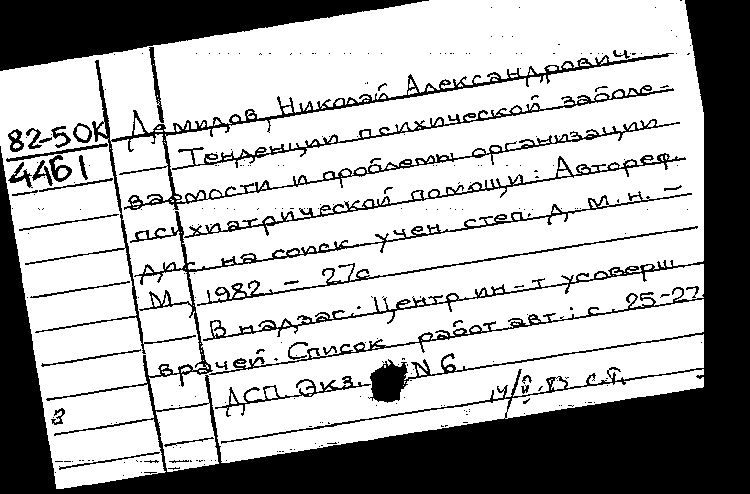 82-5ОК
4461
Демидов, Николай Александрович.
Тенденции психической заболе-
ваемости и проблемы организации
психиатрической помощи: Автореф.
дис. на соиск. учен. степ. д. м. н. –
М., 1982. – 27с.
В надзаг.: Центр ин-т усоверш
врачей. Список работ авт.: с. 25-27
ДСП. Экз. N 6.
14/II.83 С.Т.
З